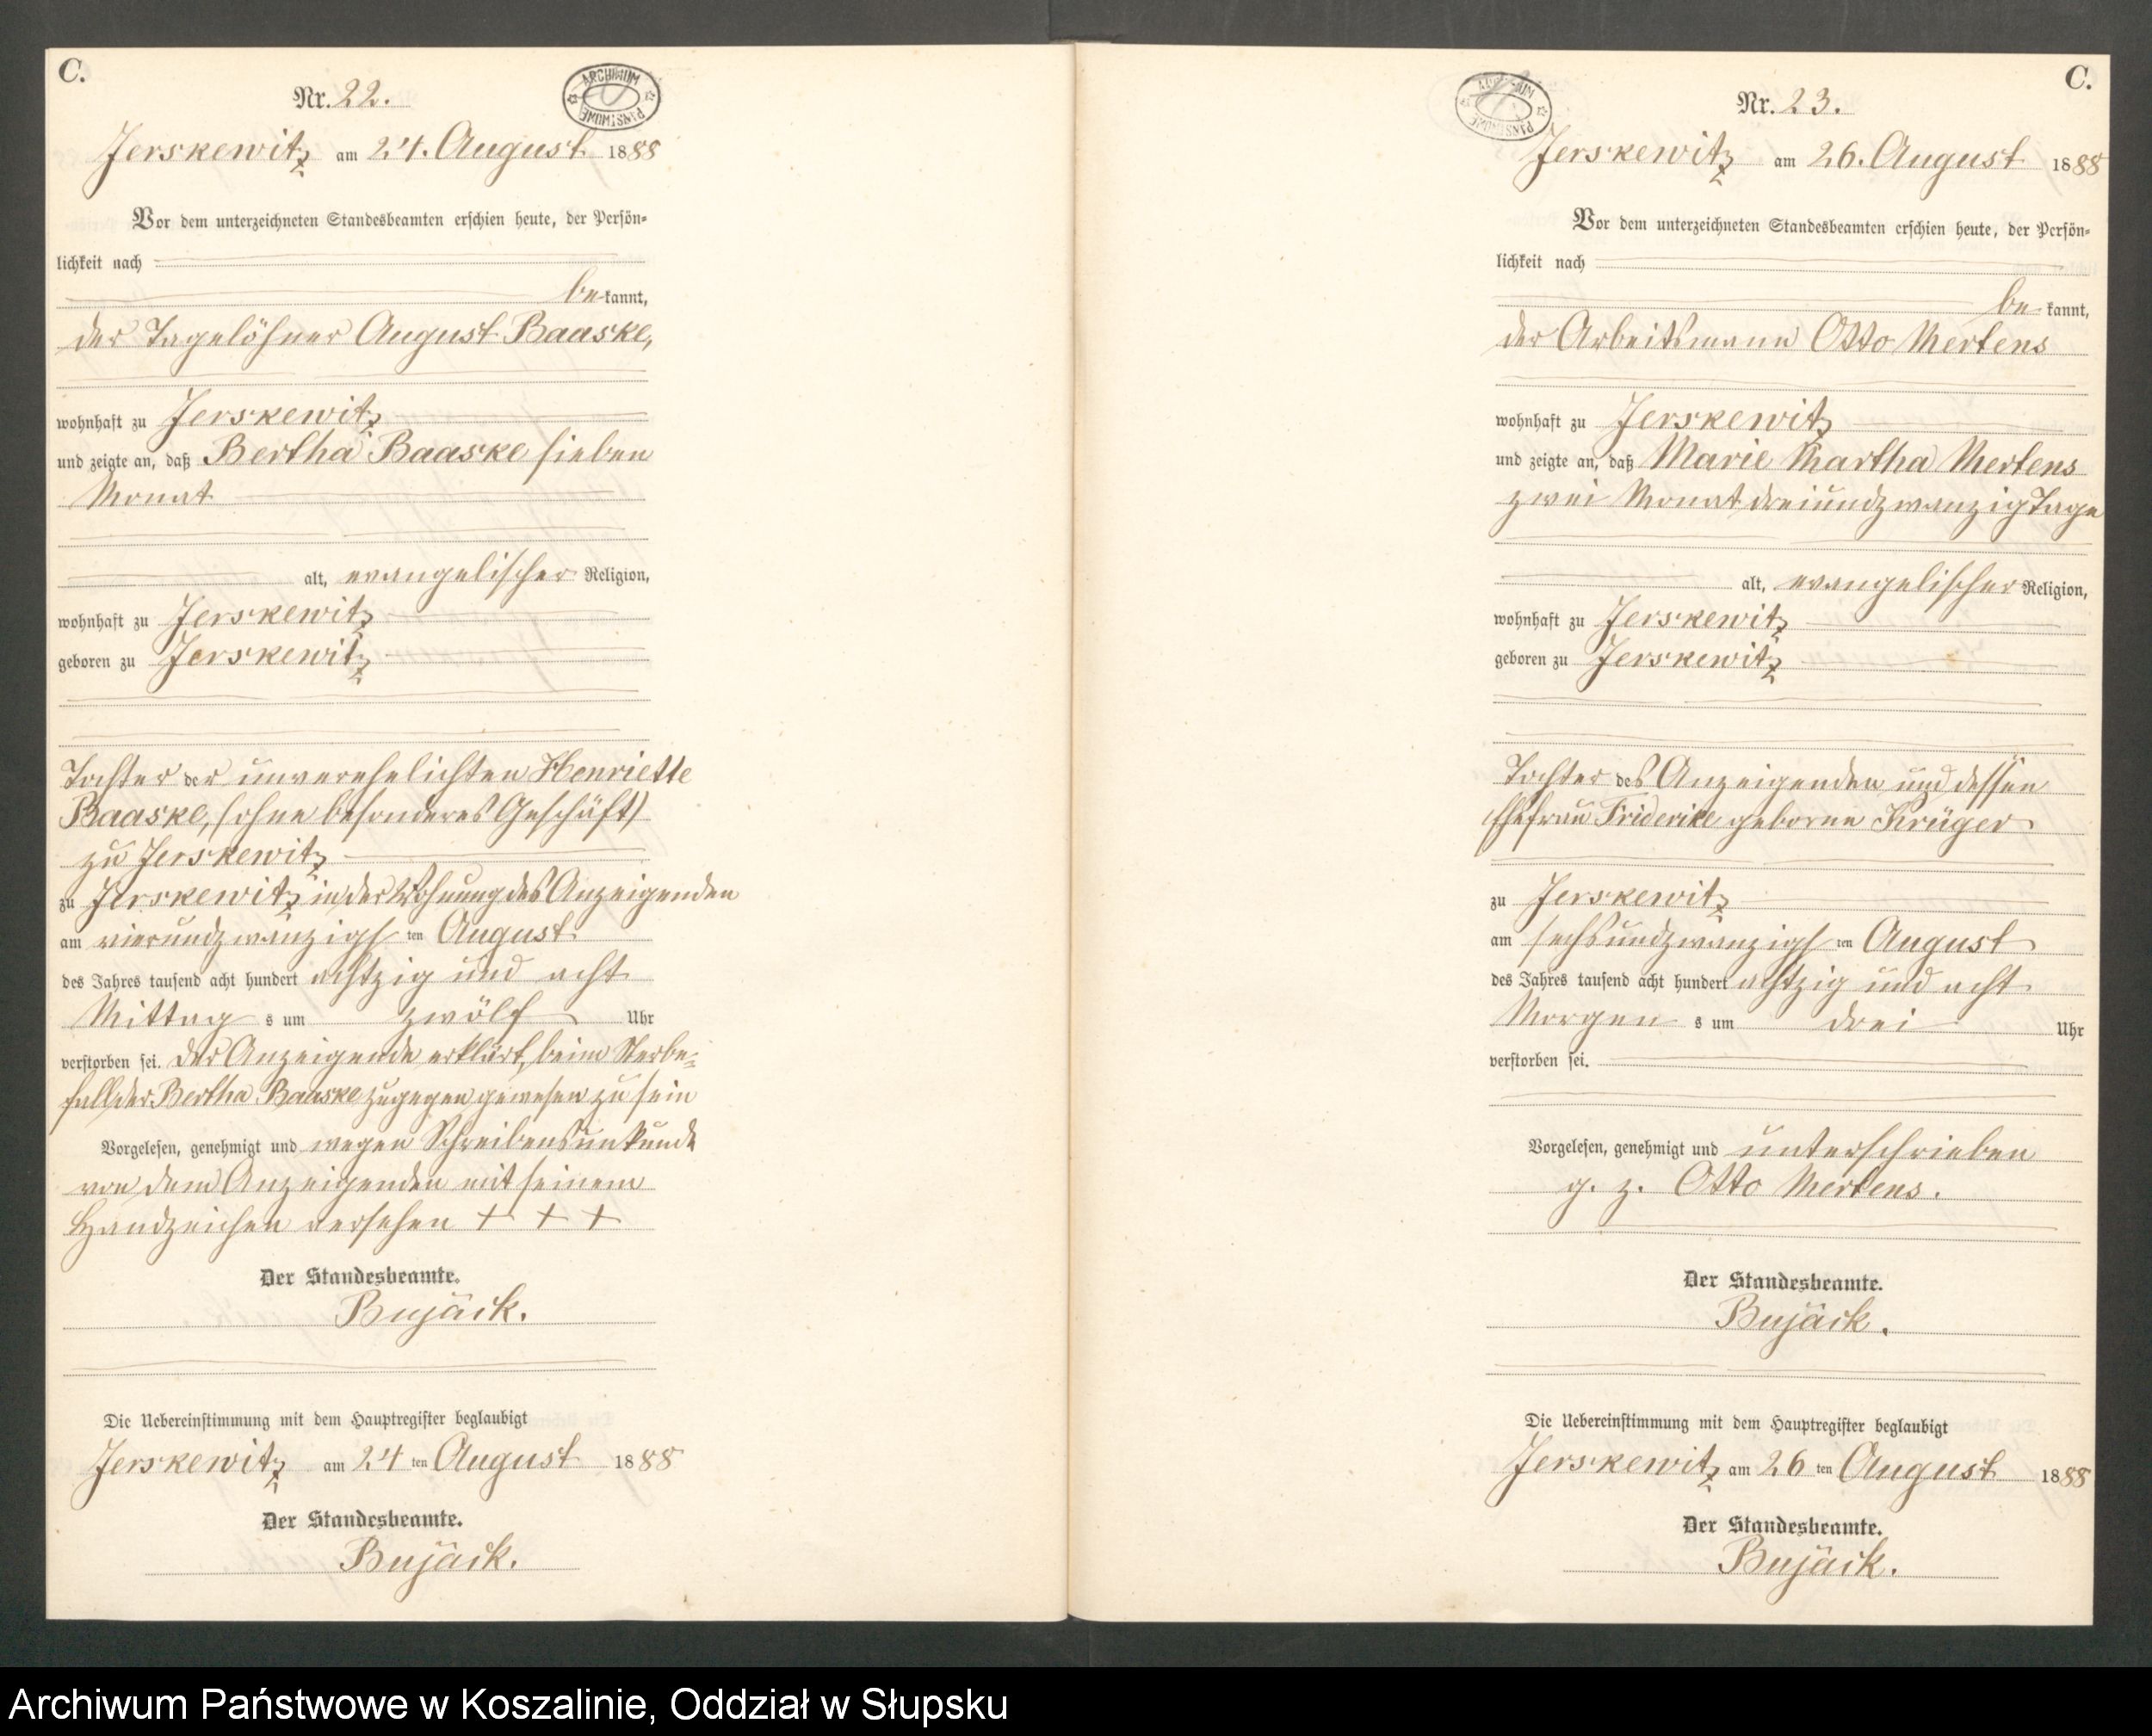 C.
Nr. 22.
ARCHIWUM PAŃSTWOWE
Jerskewitz am 24. August 1888
Vor dem unterzeichneten Standesbeamten erschien heute, der Persön-
lichkeit nach
bekannt,
der Tagelöhner August Baaske,
wohnhaft zu Jerskewitz
und zeigte an, daß Bertha Baaske sieben
Monat
alt, evangelischer Religion,
wohnhaft zu Jerskewitz
geboren zu Jerskewitz
Tochter der unverehelichten Henriette
Baaske, (ohne besonderes Geschäft)
zu Jerskewitz
zu Jerskewitz in der Wohnung des Anzeigenden
am vierundzwanzigsten August
des Jahres tausend acht hundert achtzig und acht
Mittags um zwölf Uhr
verstorben sei. Der Anzeigende erklärt, beim Sterbe-
fall der Bertha Baaske zugegen gewesen zu sein
Vorgelesen, genehmigt und wegen Schreibensunkunde
von dem Anzeigenden mit seinem
Handzeichen versehen + + +
Der Standesbeamte.
Bujäck.
Die Uebereinstimmung mit dem Hauptregister beglaubigt
Jerskewitz am 24ten August 1888
Der Standesbeamte.
Bujäck.
C.
Nr. 23.
ARCHIWUM PAŃSTWOWE
Jerskewitz am 26. August 1888
Vor dem unterzeichneten Standesbeamten erschien heute, der Persön-
lichkeit nach
bekannt,
der Arbeitsmann Otto Mertens
wohnhaft zu Jerskewitz
und zeigte an, daß Marie Martha Mertens
zwei Monat dreiundzwanzig Tage
alt, evangelischer Religion,
wohnhaft zu Jerskewitz
geboren zu Jerskewitz
Tochter des Anzeigenden und dessen
Ehefrau Friderike geborne Krüger
zu Jerskewitz
am sechsundzwanzigsten August
des Jahres tausend acht hundert achtzig und acht
Morgens um drei Uhr
verstorben sei.
Vorgelesen, genehmigt und unterschrieben
g. z. Otto Mertens.
Der Standesbeamte.
Bujäck.
Die Uebereinstimmung mit dem Hauptregister beglaubigt
Jerskewitz am 26ten August 1888
Der Standesbeamte.
Bujäck.
Archiwum Państwowe w Koszalinie, Oddział w Słupsku